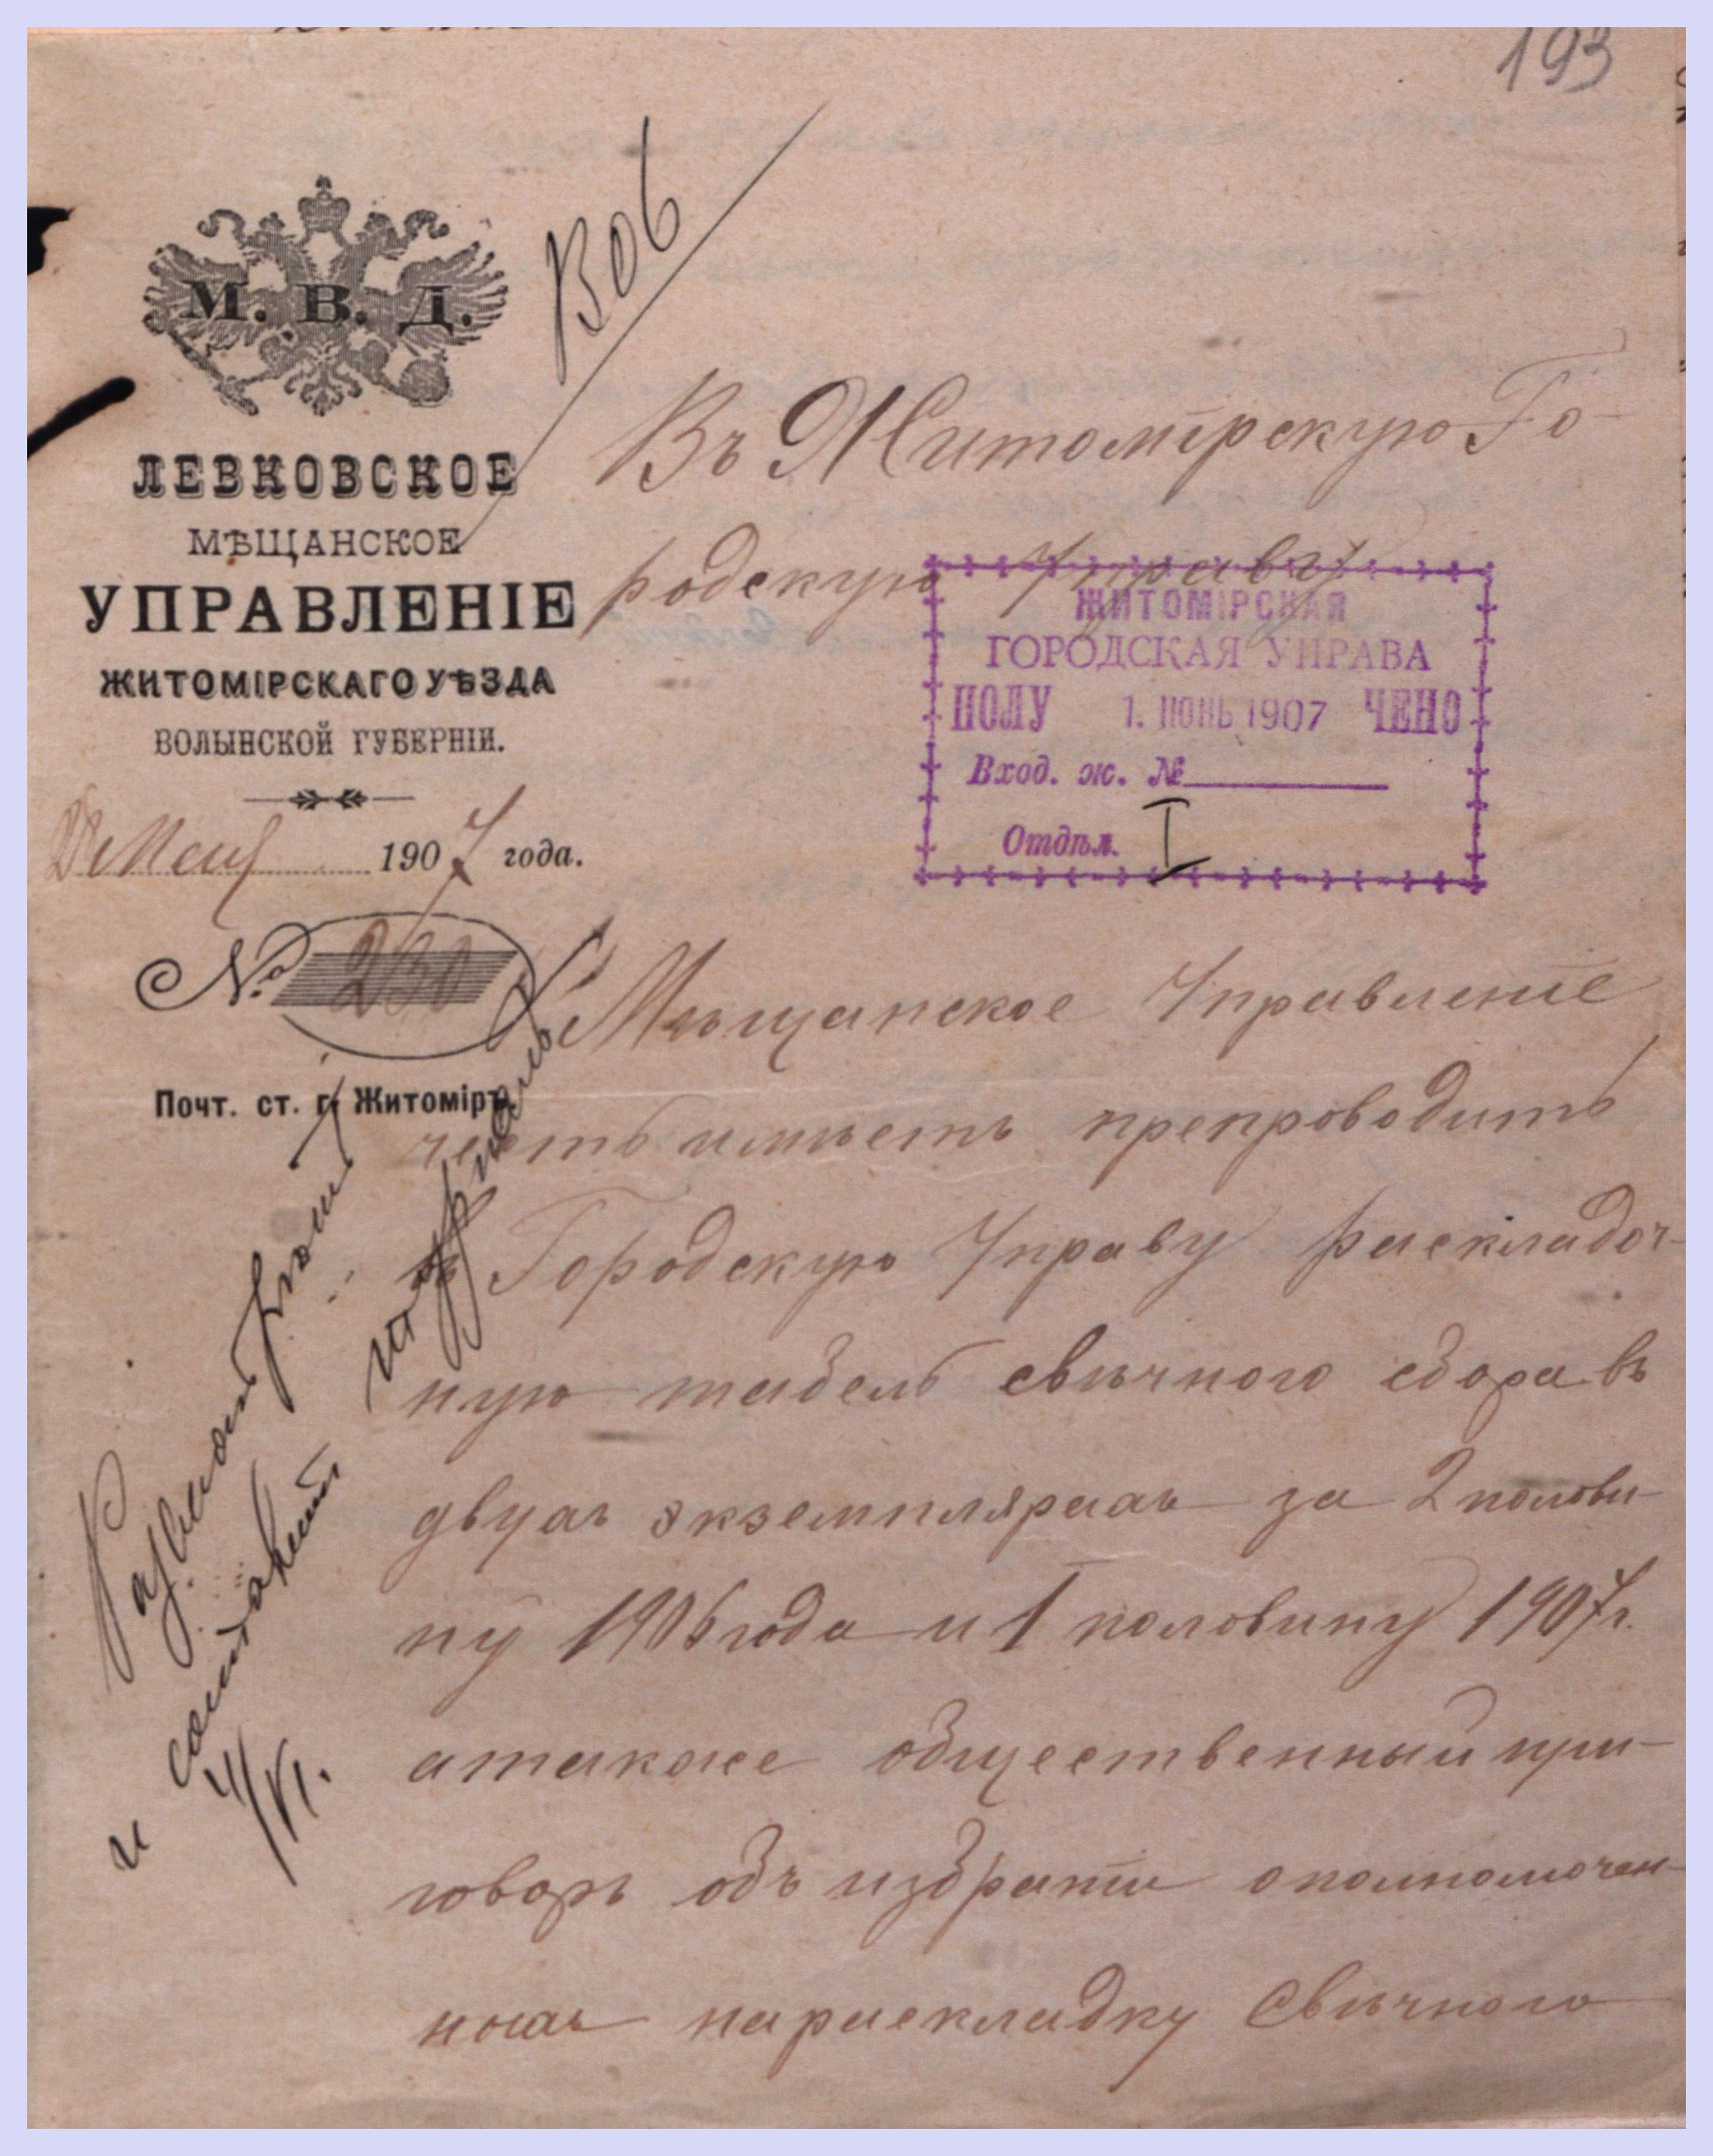 193
М. В. Д.
ЛЕВКОВСКОЕ
МѢЩАНСКОЕ
УПРАВЛЕНІЕ
ЖИТОМІРСКАГО УѢЗДА
ВОЛЫНСКОЙ ГУБЕРНІИ.
1907 года.
№ 230
Почт. ст. г. Житоміръ.
Въ Житомірскую Го-
родскую Управу
ЖИТОМІРСКАЯ
ГОРОДСКАЯ УПРАВА
ПОЛУ 1. ІЮНЬ 1907 ЧЕНО
Вход. ж. №
Отдѣл. I
Мѣщанское Управленіе
честь имѣетъ препроводить
въ Городскую Управу раскладоч-
ную табель свѣчного сбора въ
двухъ экземплярахъ за 2 полови-
ну 1906 года и 1 половину 1907 г.
атакже общественный при-
говоръ объ избраніи уполномочен-
ныхъ нараскладку Свѣчного
и
4/VI.